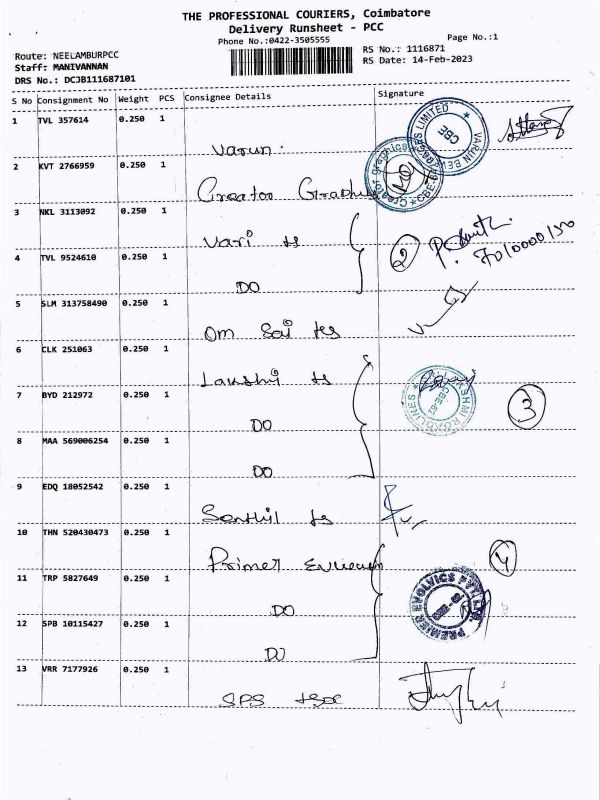 THE PROFESSIONAL COURIERS, Coimbatore
Delivery Runsheet - PCC
Phone No.:0422-3505555
Page No.:1
Route: NEELAMBURPCC
RS No.: 1116871
Staff: MANIVANNAN
RS Date: 14-Feb-2023
DRS No.: DCJB111687101
S No Consignment No Weight PCS Consignee Details Signature
1 TVL 357614 0.250 1
Varun.
VARUN BEVERAGES LIMITED CBE
2 KVT 2766959 0.250 1
Creator
Creator graphics CBE
3 NKL 3113092 0.250 1
Vari ts
2
7010000150
4 TVL 9524610 0.250 1
DO
5 SLM 313758490 0.250 1
Om Sai ts
6 CLK 251063 0.250 1
Lakshmi ts
LAKSHMI ROADLINES CBE-62
3
7 BYD 212972 0.250 1
DO
8 MAA 569006254 0.250 1
DO
9 EDQ 18052542 0.250 1
Senthil ts
10 THN 520430473 0.250 1
Primer
4
11 TRP 5827649 0.250 1
DO
PREMIER EVOLVICS PVT LTD.
12 SPB 10115427 0.250 1
DO
13 VRR 7177926 0.250 1
SPS